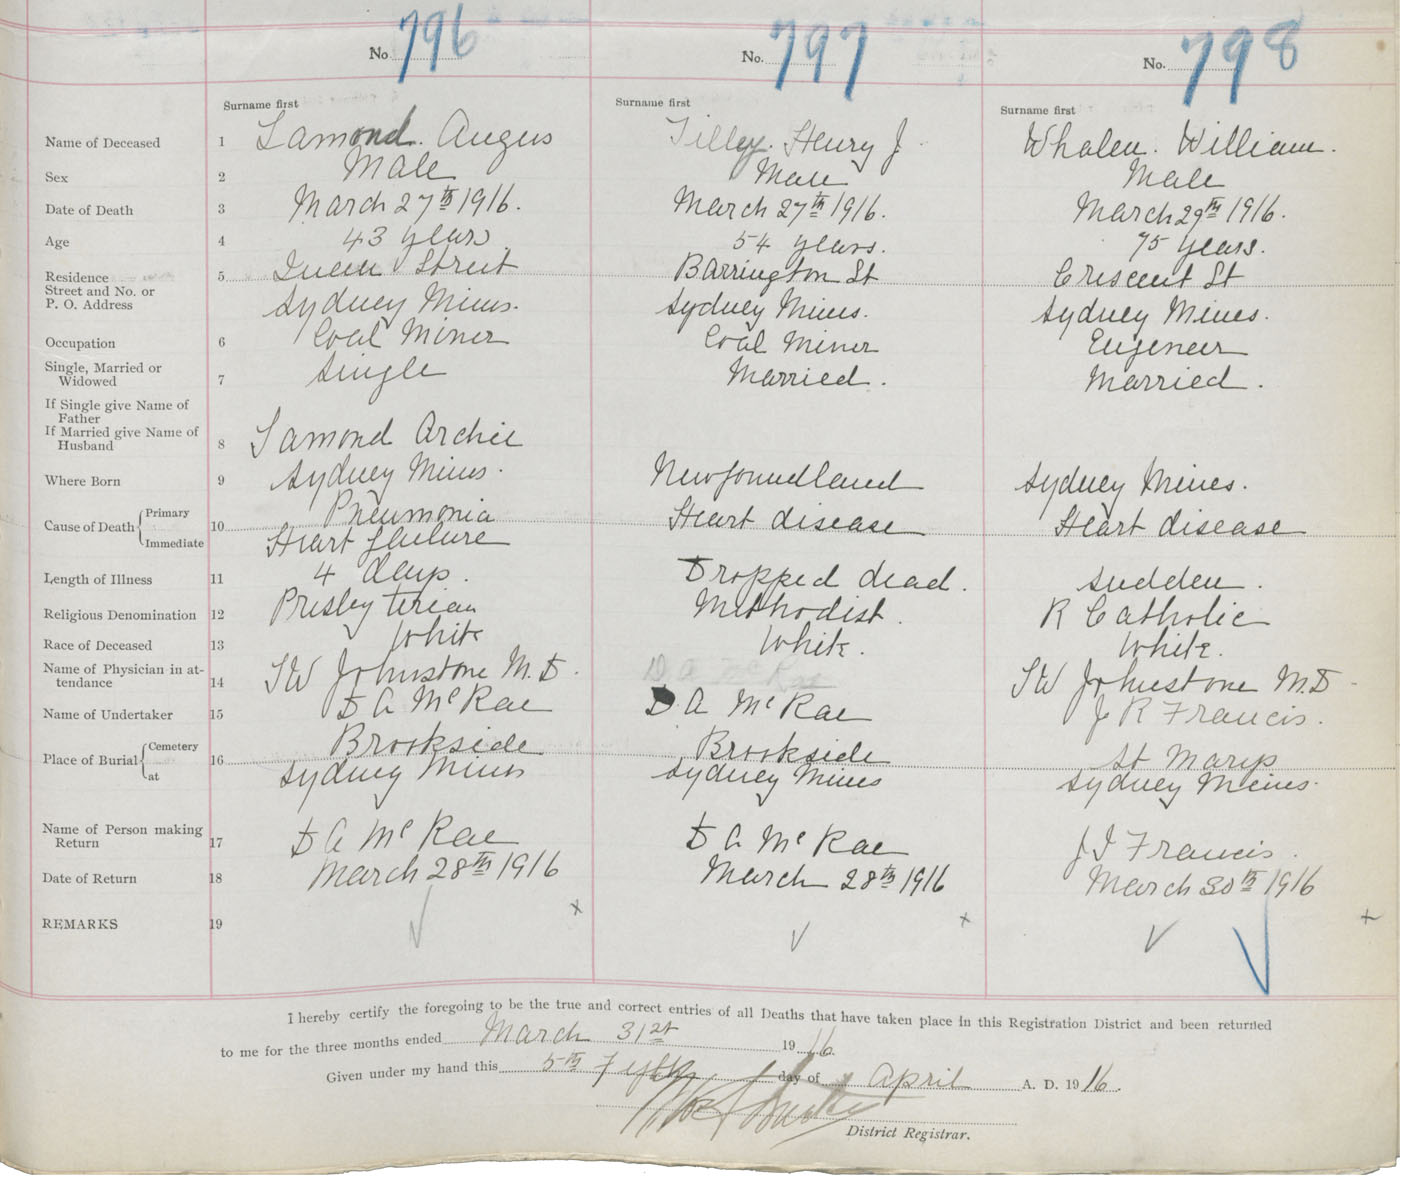 No. 796 No. 797 No. 798
Surname first Surname first Surname first
Name of Deceased 1 Lamond. Angus Tilley. Henry J. Whalen. William.
Sex 2 Male Male Male
Date of Death 3 March 27th 1916. March 27th 1916. March 29th 1916.
Age 4 43 years. 54 years. 75 years.
Residence 5 Queen Street Barrington St Crescent St
Street and No. or
P. O. Address Sydney Mines. Sydney Mines. Sydney Mines.
Occupation 6 Coal Miner Coal Miner Engeneer
Single, Married or
Widowed 7 Single Married. Married.
If Single give Name of
Father
If Married give Name of
Husband 8 Lamond Archie
Where Born 9 Sydney Mines. Newfoundland Sydney Mines.
Cause of Death Primary 10 Pneumonia Heart disease Heart disease
Immediate Heart failure
Length of Illness 11 4 days. Dropped dead. sudden.
Religious Denomination 12 Presbyterian Methodist. R Catholic
Race of Deceased 13 White White. White.
Name of Physician in at-
tendance 14 Johnstone M.D. D A McRae Johnstone M.D
Name of Undertaker 15 D A McRae D A McRae J R Francis.
Place of Burial Cemetery 16 Brookside Brookside St Marys
at Sydney Mines Sydney Mines Sydney Mines.
Name of Person making
Return 17 D A McRae D A McRae J I Francis.
Date of Return 18 March 28th 1916 March 28th 1916 March 30th 1916
REMARKS 19
I hereby certify the foregoing to be the true and correct entries of all Deaths that have taken place in this Registration District and been returned
to me for the three months ended March 31st 1916.
Given under my hand this 5th Fifth day of April A. D. 1916.
District Registrar.